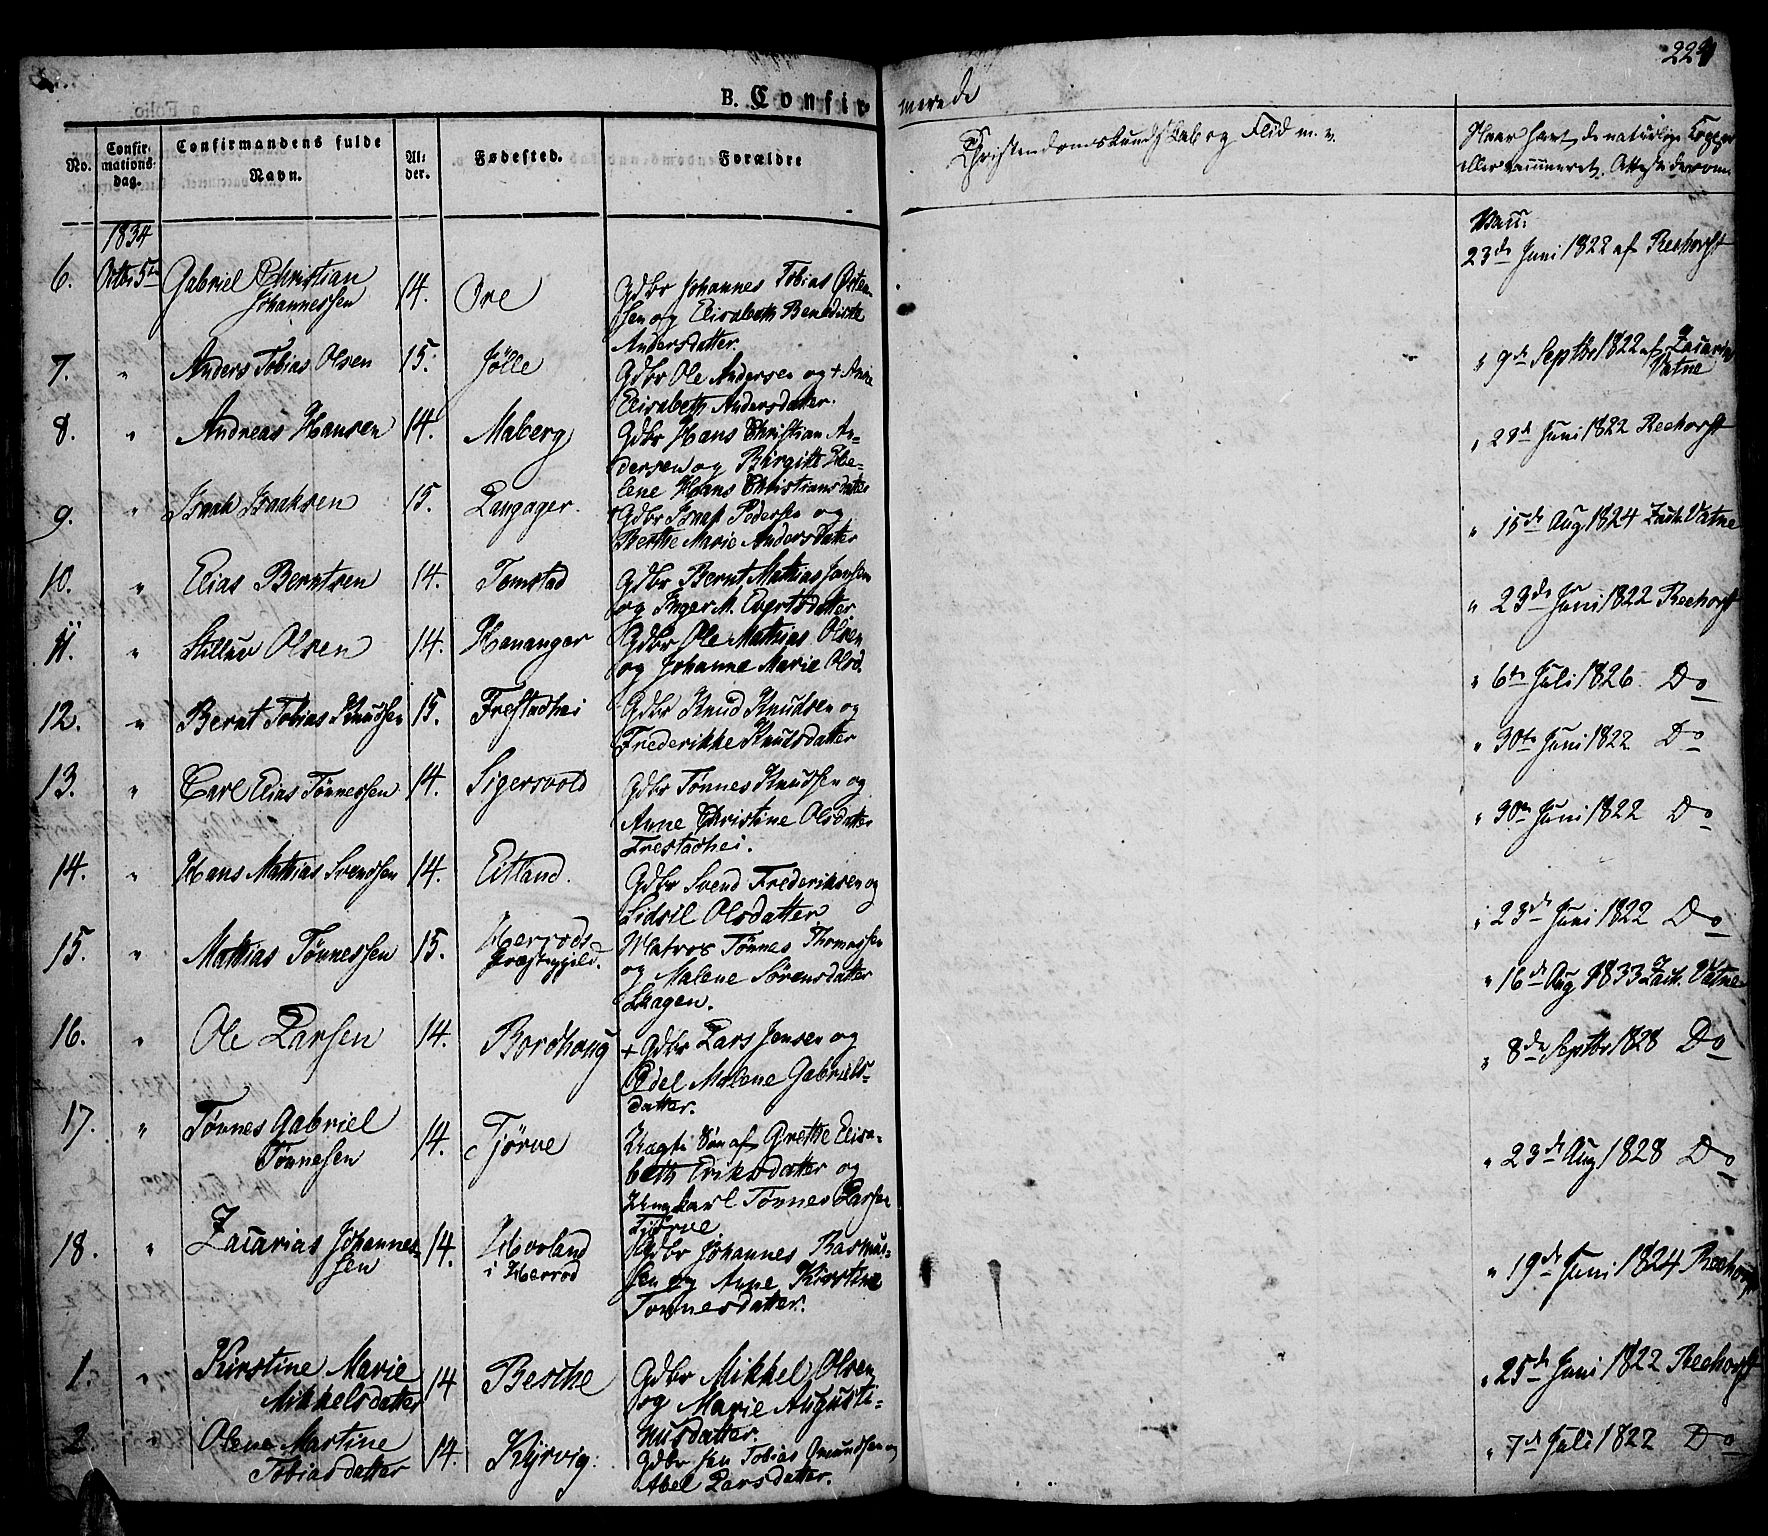 224
B. Confir merede
No.
Confir-
mations-
dag.
Confirmandens fulde
Navn.
Al-
der.
Fødested.
Forældre
Christendomskundskab og Flid m. v.
Naar havt de naturlige Kopper
eller vaccineret. Attester derom
1834
6. Octbr 5te Gabriel Christian
Johannessen
14. Ore
Gdbr Johannes Tobias Osten-
sen og Elisabeth Benedicte
Andersdatter.
Vacc.
23de Juni 1822 af Reehorst
7. " Anders Tobias Olsen 15. Jölle
Gdbr Ole Andersen og + Anne
Elisabeth Andersdatter.
" 9de Septbr 1822 af Zacarias
Vatne
8. " Andreas Hansen 14. Maberg
Gdbr Hans Christian An-
dersen og Birgitte Ele-
lene Hans Christiansdatter
" 23de Juni 1822 Reehorst
9. " Isaak Isaaksen 15. Langager.
+ Gdbr Isaak Pedersen og
Berthe Marie Andersdatter
" 15de Aug 1824 Zach. Vatne
10. " Elias Berntsen 14. Tomstad
Gdbr Bernt Mathias Jansen
og Inger M. Evertsdatter
" 23de Juni 1822 Reehorst
11. " Stillov Olsen 14. Hananger
Gdbr Ole Mathias Olsen
og Johanne Marie Olsd.
" 6te Juli 1826 Do
12. " Bernt Tobias Knudsen 15. Frestadhei
Gdbr Knud Knudsen og
Frederikke Knutsdatter
" 30te Juni 1822 Do
13. " Carl Elias Tönnessen 14. Sigersvold
Gdbr Tönnes Knudsen og
Anne Christine Olsdatter
Frestadhei.
" 30te Juni 1822 Do
14. " Hans Mathias Svendsen 14. Eitland.
Gdbr Svend Frederiksen og
Sidsil Olsdatter
" 23de Juni 1822 Do
15. " Mathias Tönnessen 15. Herrods
Præstegjeld.
Matros Tönnes Thomassen
og Malene Sörensdatter
Skagen.
" 16de Aug 1833 Zach. Vatne
16. " Ole Larsen 14. Bordhoug
+ Gdbr Lars Jensen og
Edel Malene Gabriels-
datter.
" 8de Septbr 1828 Do
17. " Tönnes Gabriel
Tönnesen
14. Tjörve
Uægte Søn af Grethe Elisa-
beth Eriksdatter og
Ungkarl Tönnes Larsen
Tjörve
" 23de Aug 1828 Do
18. " Zacarias Johannes-
sen
14. Hovland
i Herrod
Gdbr Johannes Rasmus-
sen og Anne Kirstine
Tönnesdatter.
" 19de Juni 1824 Reehorst
1. " Kirstine Marie
Mikkelsdatter
14 Besthe
Gdbr Mikkel Olsen
og Marie Augusti-
nusdatter.
" 25de Juni 1822 Reehorst
2. " Olene Martine
Tobiasdatter
14. Kjörvig.
Gdbr Jan Tobias Omundsen og
Abel Larsdatter.
" 7de Juli 1822 Do